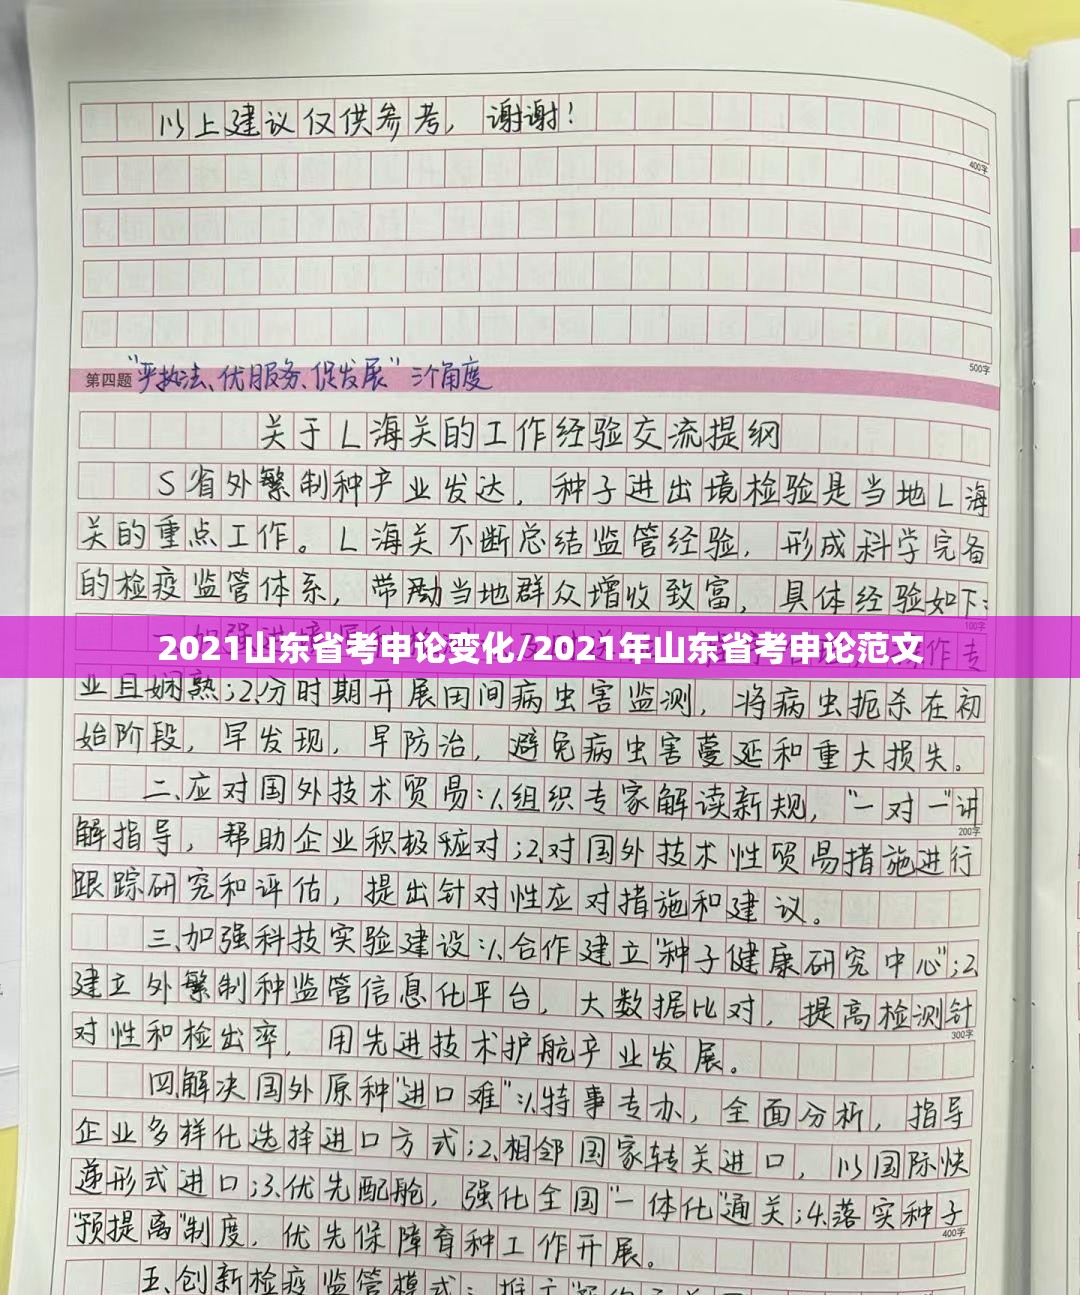 以上建议仅供参考，谢谢！
400字
500字
第四题 "严执法、优服务、促发展"三个角度
关于L海关的工作经验交流提纲
S省外繁制种产业发达，种子进出境检验是当地L海
关的重点工作。L海关不断总结监管经验，形成科学完备
的检疫监管体系，带动当地群众增收致富，具体经验如下：
100字
2021山东省考申论变化/2021年山东省考申论范文
作专
业且娴熟；2.分时期开展田间病虫害监测，将病虫扼杀在初
始阶段，早发现，早防治，避免病虫害蔓延和重大损失。
二、应对国外技术贸易：1.组织专家解读新规，"一对一"讲
200字
解指导，帮助企业积极应对；2.对国外技术性贸易措施进行
跟踪研究和评估，提出针对性应对措施和建议。
三、加强科技实验建设：1.合作建立"种子健康研究中心"；2.
建立外繁制种监管信息化平台，大数据比对，提高检测针
300字
对性和检出率，用先进技术护航产业发展。
四、解决国外原种"进口难"：1.特事专办，全面分析，指导
企业多样化选择进口方式；2.相邻国家转关进口，以国际快
递形式进口；3.优先配舱，强化全国"一体化"通关；4.落实种子
400字
"预提离"制度，优先保障育种工作开展。
五、创新检疫监管模式：推广